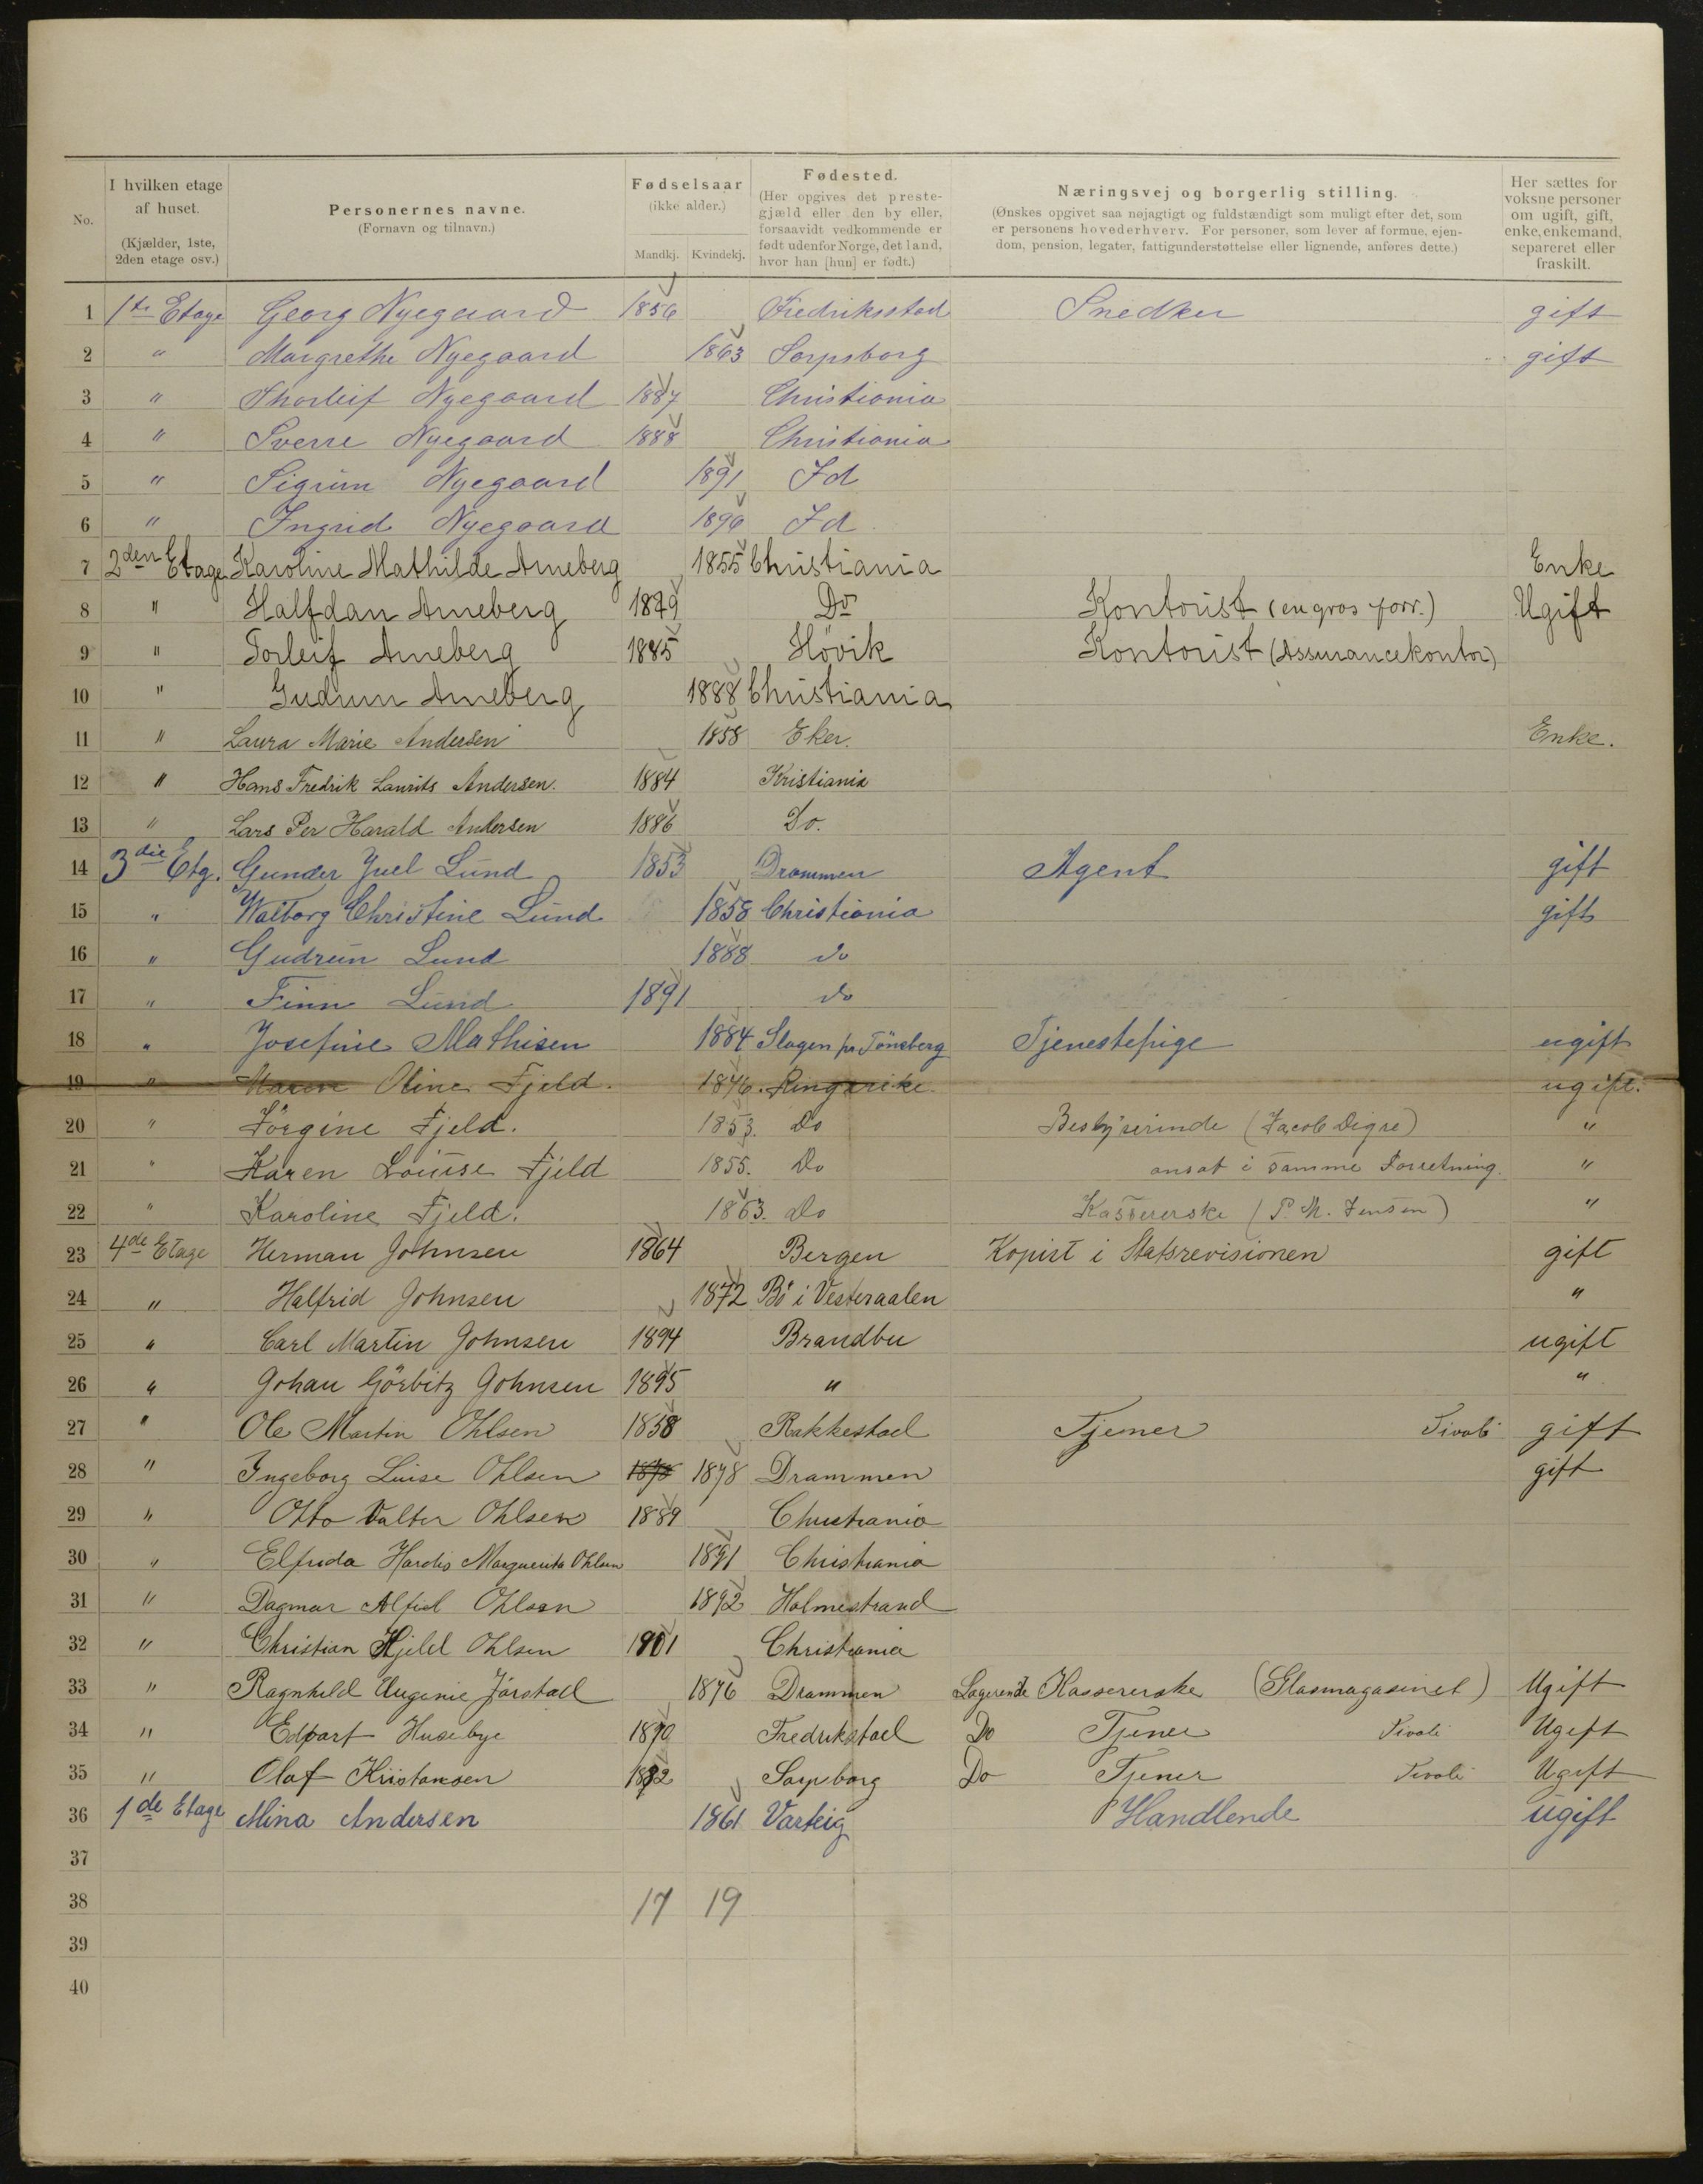 No.
I hvilken etage af huset. (Kjælder, 1ste, 2den etage osv.)
Personernes navne. (Fornavn og tilnavn.)
Fødselsaar (ikke alder.) Mandkj. Kvindekj.
Fødested. (Her opgives det prestegjæld eller den by eller, forsaavidt vedkommende er født udenfor Norge, det land, hvor han [hun] er født.)
Næringsvej og borgerlig stilling. (Ønskes opgivet saa nøjagtigt og fuldstændigt som muligt efter det, som er personens hovederhverv. For personer, som lever af formue, ejendom, pension, legater, fattigunderstøttelse eller lignende, anføres dette.)
Her sættes for voksne personer om ugift, gift, enke, enkemand, separeret eller fraskilt.
1 1te Etage Georg Nyegaard 1856 Fredriksstad Snedker gift
2 " Margrethe Nyegaard 1863 Sarpsborg gift
3 " Thorleif Nyegaard 1887 Christiania
4 " Sverre Nyegaard 1888 Christiania
5 " Sigrun Nyegaard 1891 Id
6 " Ingrid Nyegaard 1896 Id
7 2den Etage Karoline Mathilde Arneberg 1855 Christiania Enke
8 " Halfdan Arneberg 1879 Do Kontorist (en gros forr.) Ugift
9 " Torleif Arneberg 1885 Hövik Kontorist (Assurancekontor)
10 " Gudrun Arneberg 1888 Christiania
11 " Laura Marie Andersen 1858 Eker. Enke.
12 " Hans Fredrik Laurits Andersen. 1884 Kristiania
13 " Lars Per Harald Andersen 1886 Do.
14 3die Etg. Gunder Juel Lund 1853 Drammen Agent gift
15 " Walborg Christine Lund 1858 Christiania gift
16 " Gudrun Lund 1888 do
17 " Finn Lund 1891 do
18 " Josefine Mathisen 1884 Slagen pr Tönsberg Tjenestepige ugift
19 " Maren Oline Fjeld. 1846. Ringerike. ugift.
20 " Jörgine Fjeld. 1853. Do Bestyrerinde (Jacob Digre) "
21 " Karen Louise Fjeld 1855. Do ansat i samme Forretning. "
22 " Karoline Fjeld. 1863. Do Kassererske (P. M. Jensen) "
23 4de Etage Herman Johnsen 1864 Bergen Kopist i Statsrevisionen gift
24 " Halfrid Johnsen 1872 Bö i Vesteraalen "
25 " Carl Martin Johnsen 1894 Brandbu ugift
26 " Johan Görbitz Johnsen 1895 " "
27 " Ole Martin Ohlsen 1858 Rakkestad Tjener Tivoli gift
28 " Ingeborg Luise Ohlsen 1878 Drammen gift
29 " Otto Valter Ohlsen 1889 Christiania
30 " Elfrida Hardis Marguerita Ohlsen 1891 Christiania
31 " Dagmar Alfild Ohlsen 1892 Holmestrand
32 " Christian Hjeld Ohlsen 1901 Christiania
33 " Ragnhild Eugenie Jarstad 1876 Drammen Logerende Kassererske (Glasmagasinet) Ugift
34 " Edvart Husebye 1870 Fredrikstad Do Tjener Tivoli Ugift
35 " Olaf Kristansen 1882 Sarpsborg Do Tjener Tivoli Ugift
36 1de Etage Mina Andersen 1861 Varteig Handlende ugift
37
38 17 19
39
40